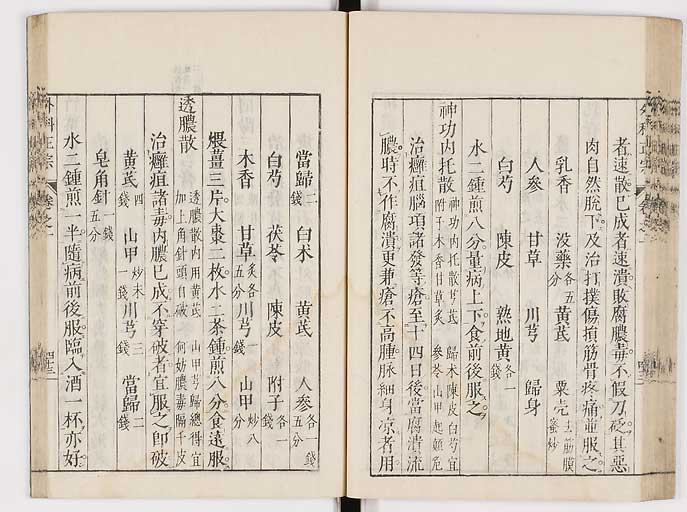 者速散已成者速潰敗腐膿毒不假刀砭其惡
肉自然脫下及治打撲傷損筋骨疼痛並服之
乳香水 沒藥各五分 黃芪 粟壳去筋膜蜜炒
人參 甘草 川芎 歸身
白芍 陳皮 熟地黃各一錢
水二鍾煎八分量病上下食前後服之
神功內托散 神功內托散芎芪 歸术陳皮白芍宜
附子木香甘草炙 參苓山甲起顛危
治癰疽腦項諸發等瘡至十四日後當腐潰流
膿時不作腐潰更兼瘡不高腫脈細身凉者用
當歸二錢 白术 黃芪 人參各一錢五分
白芍 茯苓 陳皮 附子各一錢
木香 甘草炙各五分 川芎一錢 山甲炒八分
煨薑三片大棗二枚水二茶鍾煎八分食遠服
透膿散 透膿散內用黃芪 山甲芎歸總得宜
加上角針頭自破 何妨膿毒隔千皮
治癰疽諸毒內膿已成不穿破者宜服之卽破
黃芪四錢 山甲炒末一錢 川芎三錢 當歸二錢
皂角針一錢五分
水二鍾煎一半隨病前後服臨入酒一杯亦好
外科正宗 卷之一